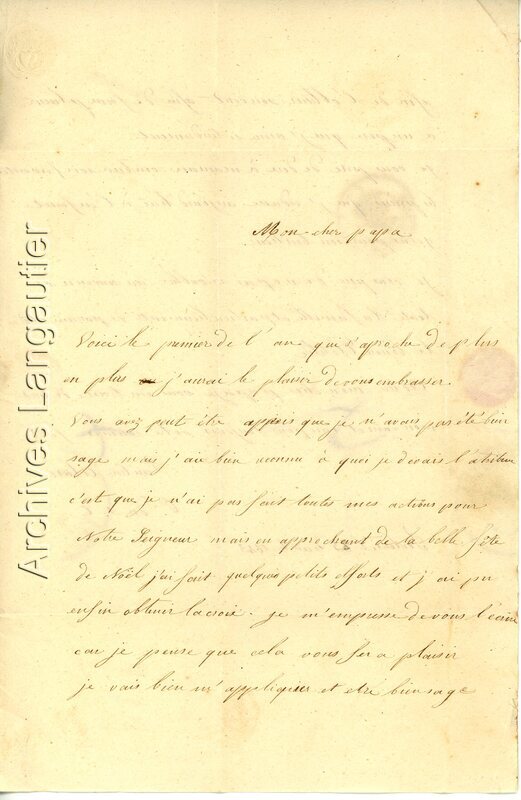 Mon cher papa
Voici le premier de l'an qui s'aproche de plus
en plus j'aurai le plaisir de vous embrasser.
Vous avez peut être appris que je n'avais pas été bien
sage mais j'ai bien reconnu à quoi je devais l'atribuer
c'est que je n'ai pas fait toutes mes actions pour
Notre Seigneur mais en approchant de la belle fête
de Noël j'ai fait quelques petits efforts et j'ai pu
enfin obtenir la croix. je m'empresse de vous l'écrire
car je pense que cela vous fera plaisir
je vais bien m'appliquer et être bien sage
Archives Langautier